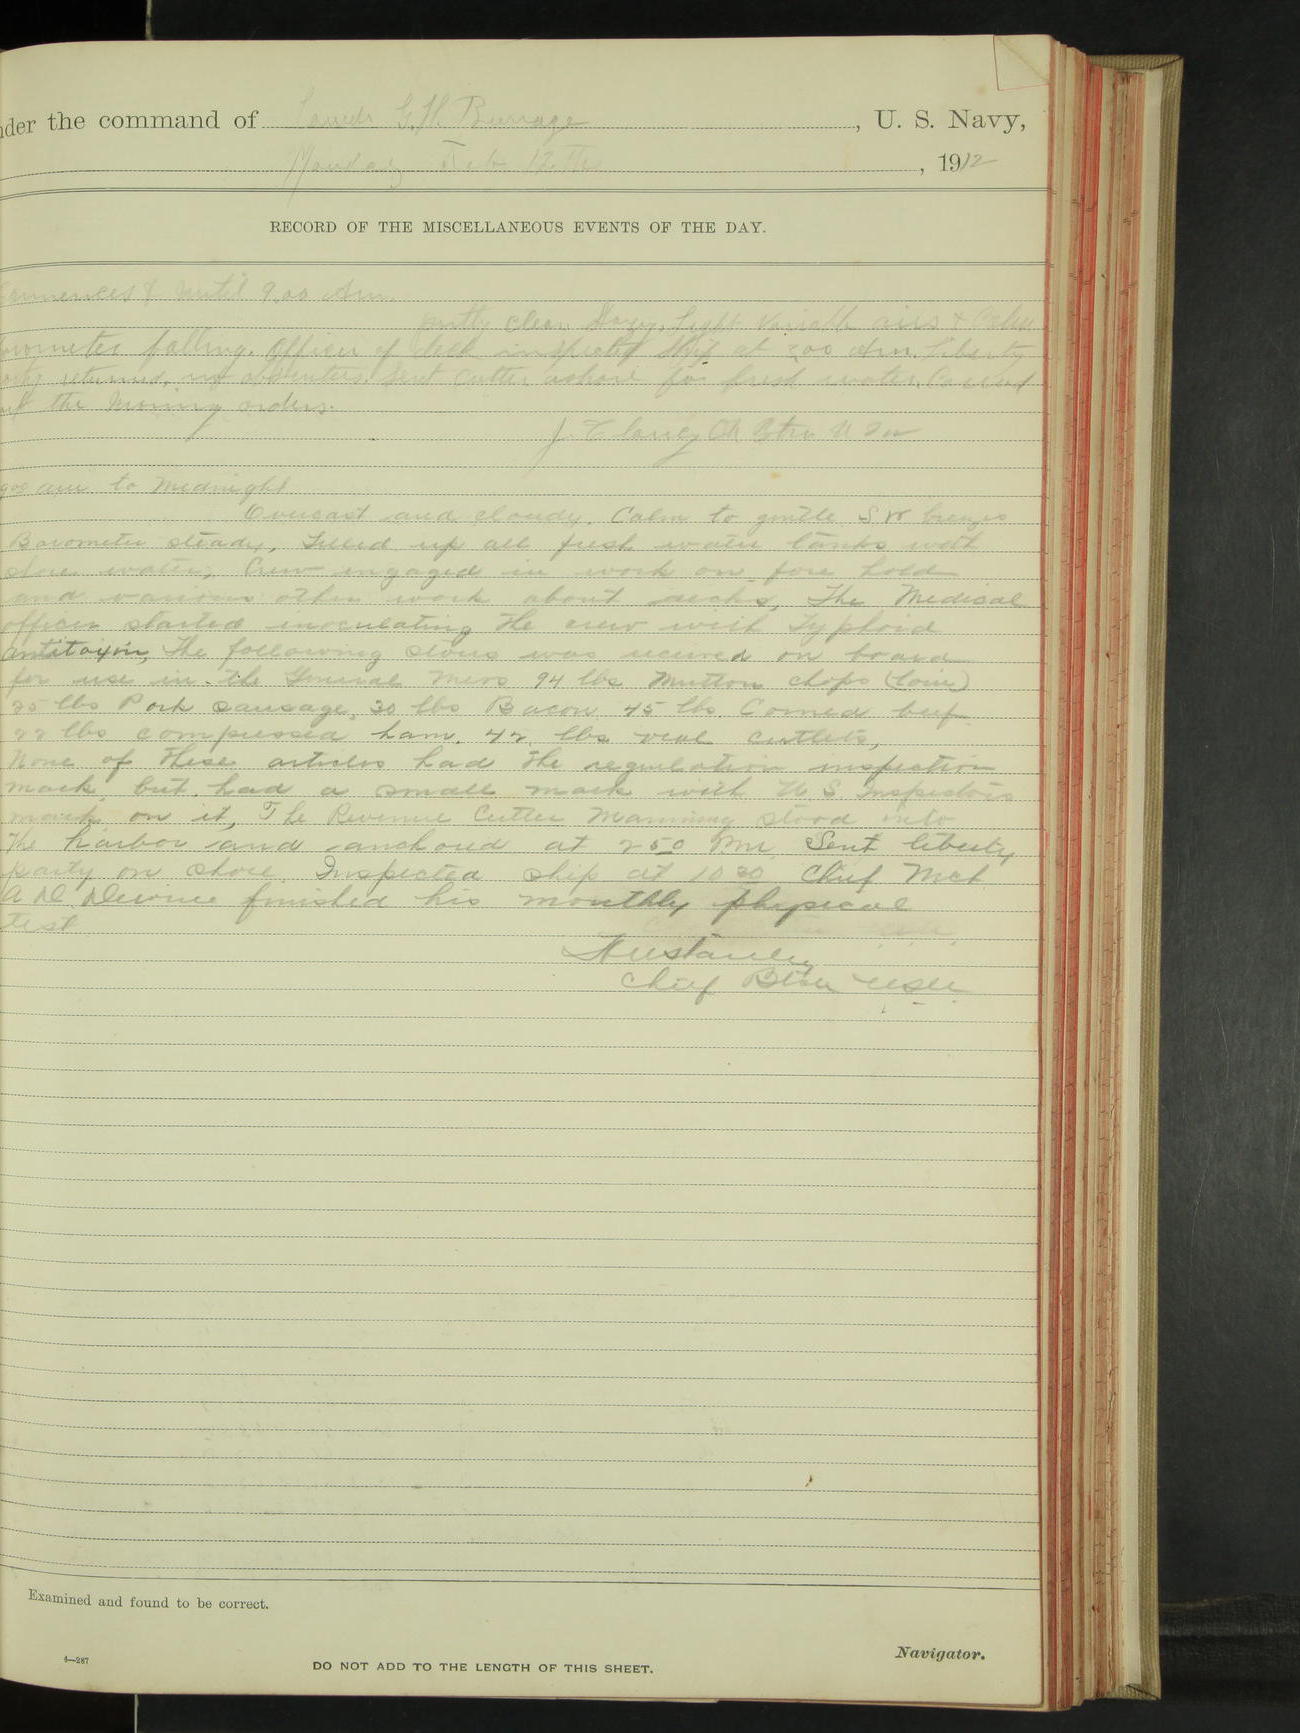 nder the command of Comdr G. H. Burrage, U. S. Navy,
Monday Feb 12th, 1912
RECORD OF THE MISCELLANEOUS EVENTS OF THE DAY.
Commences & until 9.00 Am.
partly clear. Hazy. Light variable airs & calm
barometer falling. Officer of deck inspected ship at 2 00 Am. Liberty
party returned, no absentees. Sent cutter ashore for fresh water. Carried
out the morning orders.
J. Clancy Ch Btsn U S N
9 00 am to Midnight
Overcast and cloudy. Calm to gentle SW breezes
Barometer steady, Filled up all fresh water tanks with
shore water, Crew engaged in work on fore hold
and various other work about decks, The Medical
officer started inoculating the crew with Typhoid
antitoxin, The following stores was received on board
for use in the General Mess 94 lbs Mutton chops (loin)
25 lbs Pork sausage, 30 lbs Bacon 45 lbs. Corned beef
22 lbs compressed ham. 42 lbs veal cutlets,
None of these articles had the regulation inspection
mark but had a small mark with U.S. Inspectors
mark on it, The Revenue Cutter Manning stood into
the harbor and anchored at 2 50 Pm. Sent liberty
party on shore Inspected ship at 10 30 Chief Mch
A D Devine finished his monthly physical
test
Hustanley
Chief Btsn USN
Examined and found to be correct.
4—287
DO NOT ADD TO THE LENGTH OF THIS SHEET.
Navigator.